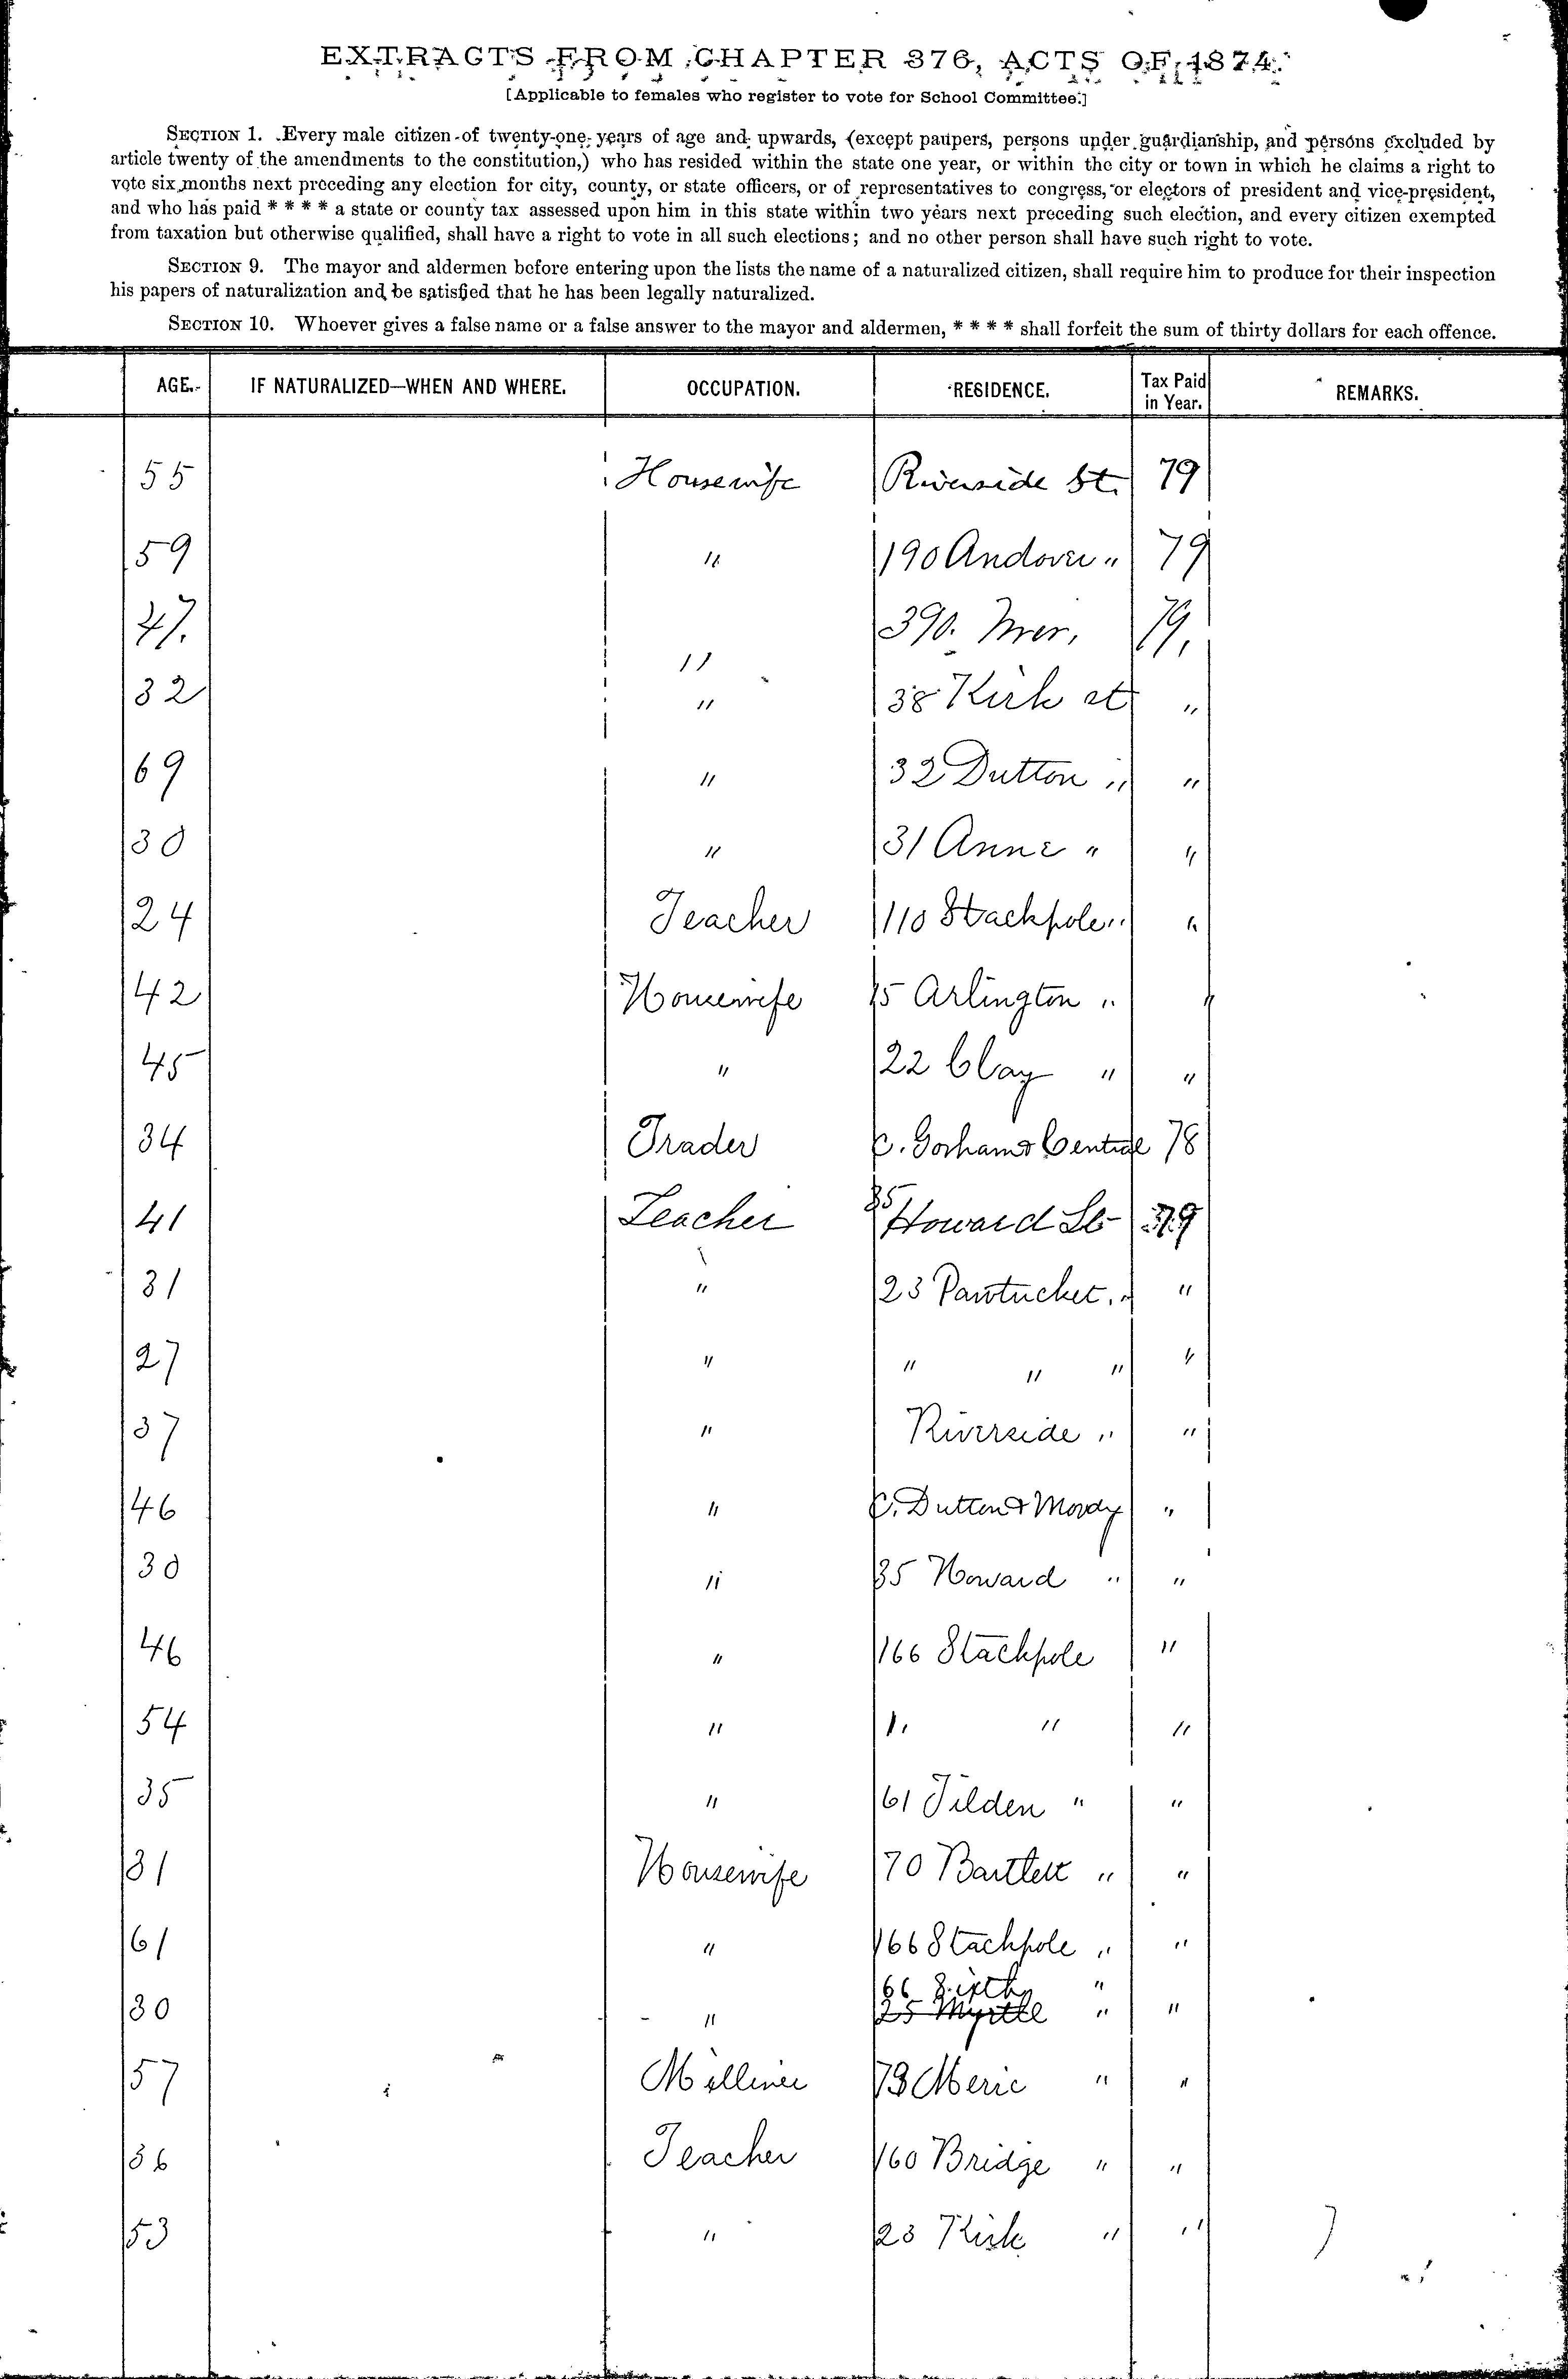 EXTRACTS FROM CHAPTER 376, ACTS OF 1874.
[Applicable to females who register to vote for School Committee.]
SECTION 1. Every male citizen of twenty-one years of age and upwards, (except paupers, persons under guardianship, and persons excluded by
article twenty of the amendments to the constitution,) who has resided within the state one year, or within the city or town in which he claims a right to
vote six months next preceding any election for city, county, or state officers, or of representatives to congress, or electors of president and vice-president,
and who has paid * * * * a state or county tax assessed upon him in this state within two years next preceding such election, and every citizen exempted
from taxation but otherwise qualified, shall have a right to vote in all such elections; and no other person shall have such right to vote.
SECTION 9. The mayor and aldermen before entering upon the lists the name of a naturalized citizen, shall require him to produce for their inspection
his papers of naturalization and be satisfied that he has been legally naturalized.
SECTION 10. Whoever gives a false name or a false answer to the mayor and aldermen, * * * * shall forfeit the sum of thirty dollars for each offence.
AGE. IF NATURALIZED—WHEN AND WHERE. OCCUPATION. RESIDENCE. Tax Paid in Year. REMARKS.
55 Housewife Riverside St. 79
59 " 190 Andover " 79
47. " 390. Mer. 79.
32 " 38 Kirk st "
69 " 32 Dutton " "
30 " 31 Anne " "
24 Teacher 110 Stackpole " "
42 Housewife 15 Arlington " "
45 " 22 Clay " "
34 Trader C. Gorham & Central 78
41 Teacher 35 Howard St 79
31 " 23 Pawtucket " "
27 " " " " "
37 " Riverside " "
46 " C. Dutton & Moody "
30 " 35 Howard " "
46 " 166 Stackpole "
54 " " " "
35 " 61 Tilden " "
31 Housewife 70 Bartlett " "
61 " 166 Stackpole " "
66 Sixth "
30 " 25 Myrtle " "
57 Milliner 73 Meric " "
36 Teacher 160 Bridge " "
53 " 23 Kirk " "